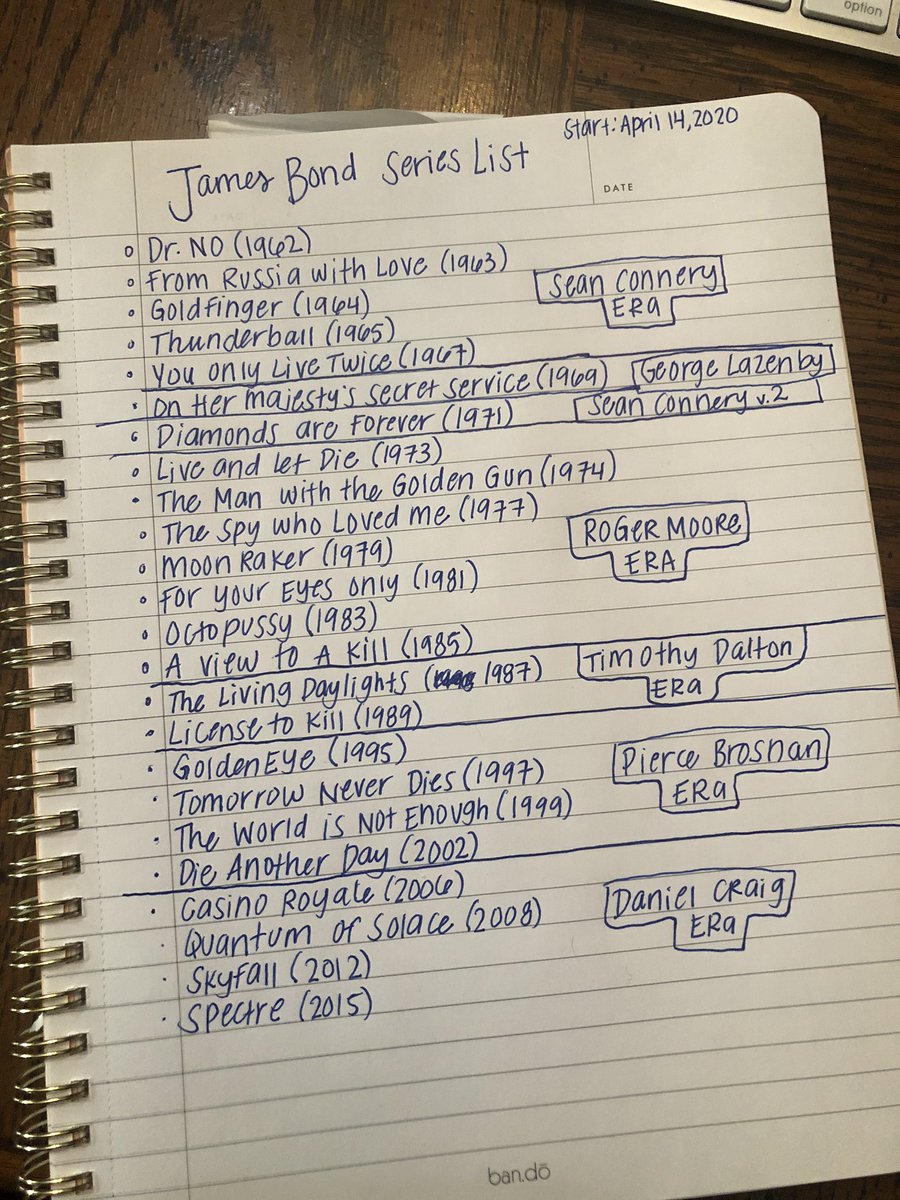 option
Start: April 14, 2020
James Bond Series List
DATE
Dr. NO (1962)
From Russia with Love (1963)
Sean Connery
ERa
Goldfinger (1964)
Thunderball (1965)
You only Live Twice (1967)
On Her Majesty's Secret Service (1969)
George Lazenby
Diamonds are Forever (1971)
Sean Connery v.2
Live and let Die (1973)
The Man with the Golden Gun (1974)
The Spy who Loved me (1977)
ROGER MOORE
ERA
Moon Raker (1979)
For your Eyes only (1981)
Octopussy (1983)
A view to A Kill (1985)
Timothy Dalton
ERa
The Living Daylights (1987)
License to Kill (1989)
GoldenEye (1995)
Pierce Brosnan
ERa
Tomorrow Never Dies (1997)
The World is Not Enough (1999)
Die Another Day (2002)
Casino Royale (2006)
Daniel Craig
ERa
Quantum of Solace (2008)
Skyfall (2012)
Spectre (2015)
ban.dō